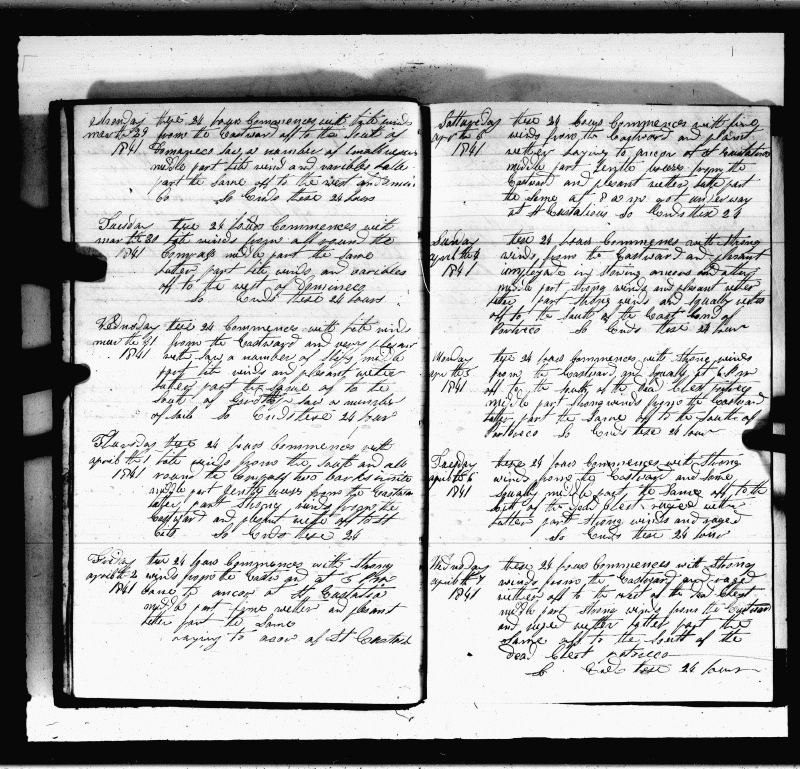 Monday these 24 hours Commences with lite winds
march 29 from the Eastward off to the South of
1841 Domaneco Saw a number of small vessels
midle part lite wind and varibles latter
part the Same off to the west of Domini
co So Ends these 24 hours
Tuesday these 24 hours Commences with
march the 30 lite winds from all round the
1841 Compass midle part the same
latter part lite winds and variables
off to the west of Domineco
So Ends these 24 hours
Wednesday these 24 Commences with lite winds
march the 31 from the Eastward and very plesant
1841 weth Saw a number of Ships midle
part lite winds and plesant wether
latter part the Same off to the
South of Saw a number
of Sails So Ends these 24 hours
Thursday these 24 hours Commences with
aprill the 1 lite winds from the South and all
1841 round the Compass two barks in site
midle part gentle breeses from the Eastward
latter part Strong winds from the
Eastward and plesant weth off to St
So Ends these 24
Friday these 24 hours Commences with Strong
aprill the 2 winds from the Eastward at 5 P m
1841 Came to ancor at St Eustatia
midle part fine wether and plesant
latter part the Same
laying to ancor at St Eustatia
Satturday these 24 hours Commences with fine
aprill the 3 winds from the Eastward and plesant
1841 wether laying to ancor at St Eustatious
midle part gentle breeses from the
Eastward and plesant wether latter part
the Same at 8 a m got under way
at St Eustatious So Ends these 24
Sunday these 24 hours Commences with Strong
aprill the 4 winds from the Eastward and plesant
1841 imployed in Stowing ancors and
midle part Strong winds and plesant wether
latter part Strong winds and Squally wether
off to the South of the East End of
Portrico So Ends these 24 hours
Monday these 24 hours Commences with Strong winds
aprill the 5 from the Eastward and Squally at 6 P m
1841 off to the South of the Dead Chest
midle part Strong winds from the Eastward
latter part the Same off to the South of
Portrico So Ends these 24 hours
Tuesday these 24 hours Commences with Strong
aprill the 6 winds from the Eastward and Some
1841 Squally midle part the Same off to the
of the Dead Chest ruged wether
latter part Strong winds and ruged
So Ends these 24 hours
Wednsday these 24 hours Commences with Strong
aprill the 7 winds from the Eastward and ruged
1841 wether off to the west of the Dead Chest
midle part Strong winds from the Eastward
and ruged wether latter part the
Same off to the South of the
Dead Chest
So Ends these 24 hours